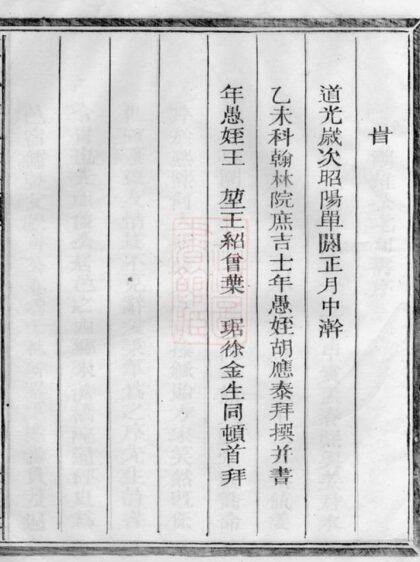 旹
道光歲次昭陽單閼正月中澣
乙未科翰林院庶吉士年愚姪胡應泰拜撰并書
年愚姪王　堃王紹曾葉　琚徐金生同頓首拜